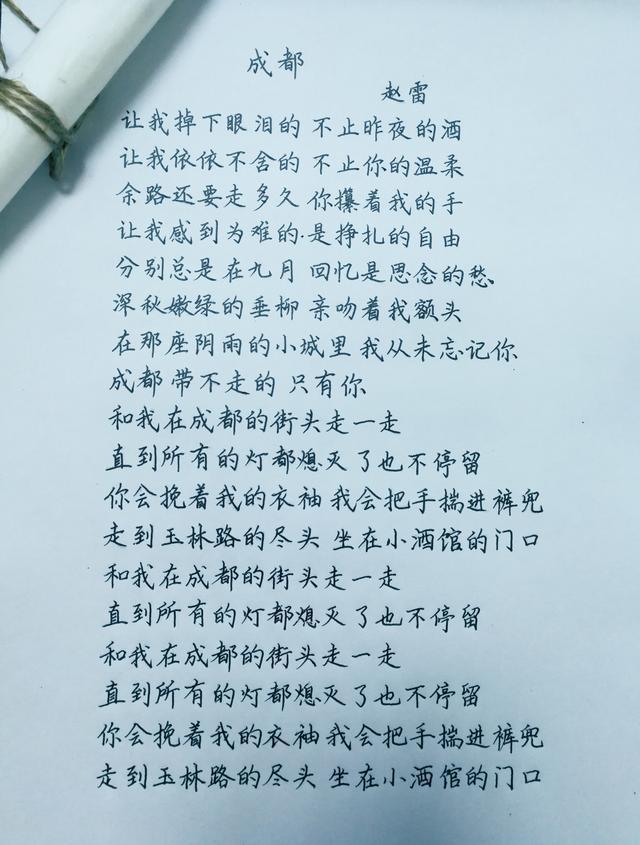 成都
赵雷
让我掉下眼泪的 不止昨夜的酒
让我依依不舍的 不止你的温柔
余路还要走多久 你攥着我的手
让我感到为难的.是挣扎的自由
分别总是在九月 回忆是思念的愁
深秋嫩绿的垂柳 亲吻着我额头
在那座阴雨的小城里 我从未忘记你
成都 带不走的 只有你
和我在成都的街头走一走
直到所有的灯都熄灭了也不停留
你会挽着我的衣袖 我会把手揣进裤兜
走到玉林路的尽头 坐在小酒馆的门口
和我在成都的街头走一走
直到所有的灯都熄灭了也不停留
和我在成都的街头走一走
直到所有的灯都熄灭了也不停留
你会挽着我的衣袖 我会把手揣进裤兜
走到玉林路的尽头 坐在小酒馆的门口